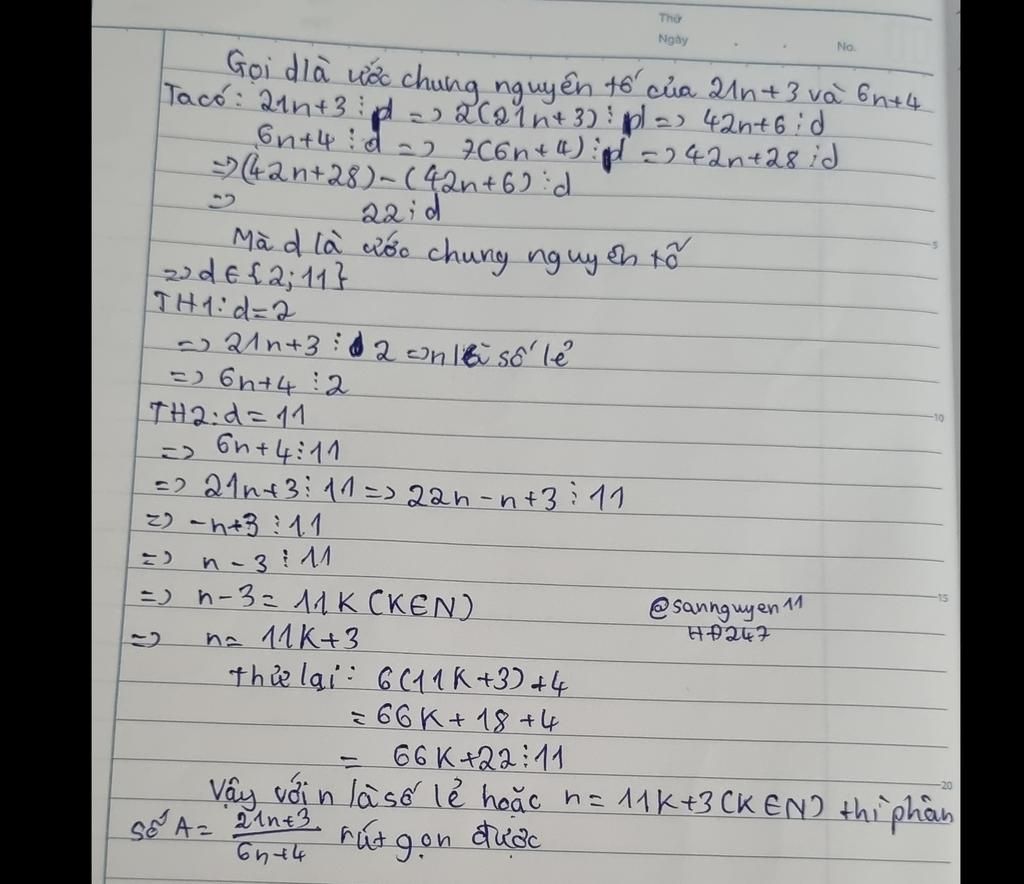 Thứ
Ngày . . No.
Gọi d là ước chung nguyên tố của 21n+3 và 6n+4
Ta có: 21n+3 ⋮ d => 2(21n+3) ⋮ d => 42n+6 ⋮ d
6n+4 ⋮ d => 7(6n+4) ⋮ d => 42n+28 ⋮ d
=> (42n+28) - (42n+6) ⋮ d
=> 22 ⋮ d
Mà d là ước chung nguyên tố
=> d ∈ {2; 11}
TH1: d=2
=> 21n+3 ⋮ 2 => n là số lẻ
=> 6n+4 ⋮ 2
TH2: d = 11
=> 6n+4 ⋮ 11
=> 21n+3 ⋮ 11 => 22n - n+3 ⋮ 11
=> -n+3 ⋮ 11
=> n - 3 ⋮ 11
=> n-3 = 11K (K∈N)
@sannguyen11
HĐ247
=> n= 11K+3
thử lại: 6(11K+3)+4
= 66K + 18 +4
= 66K+22 ⋮ 11
Vậy với n là số lẻ hoặc n= 11K+3 (K∈N) thì phân
số A= 21n+3/6n+4 rút gọn được
5
10
15
20